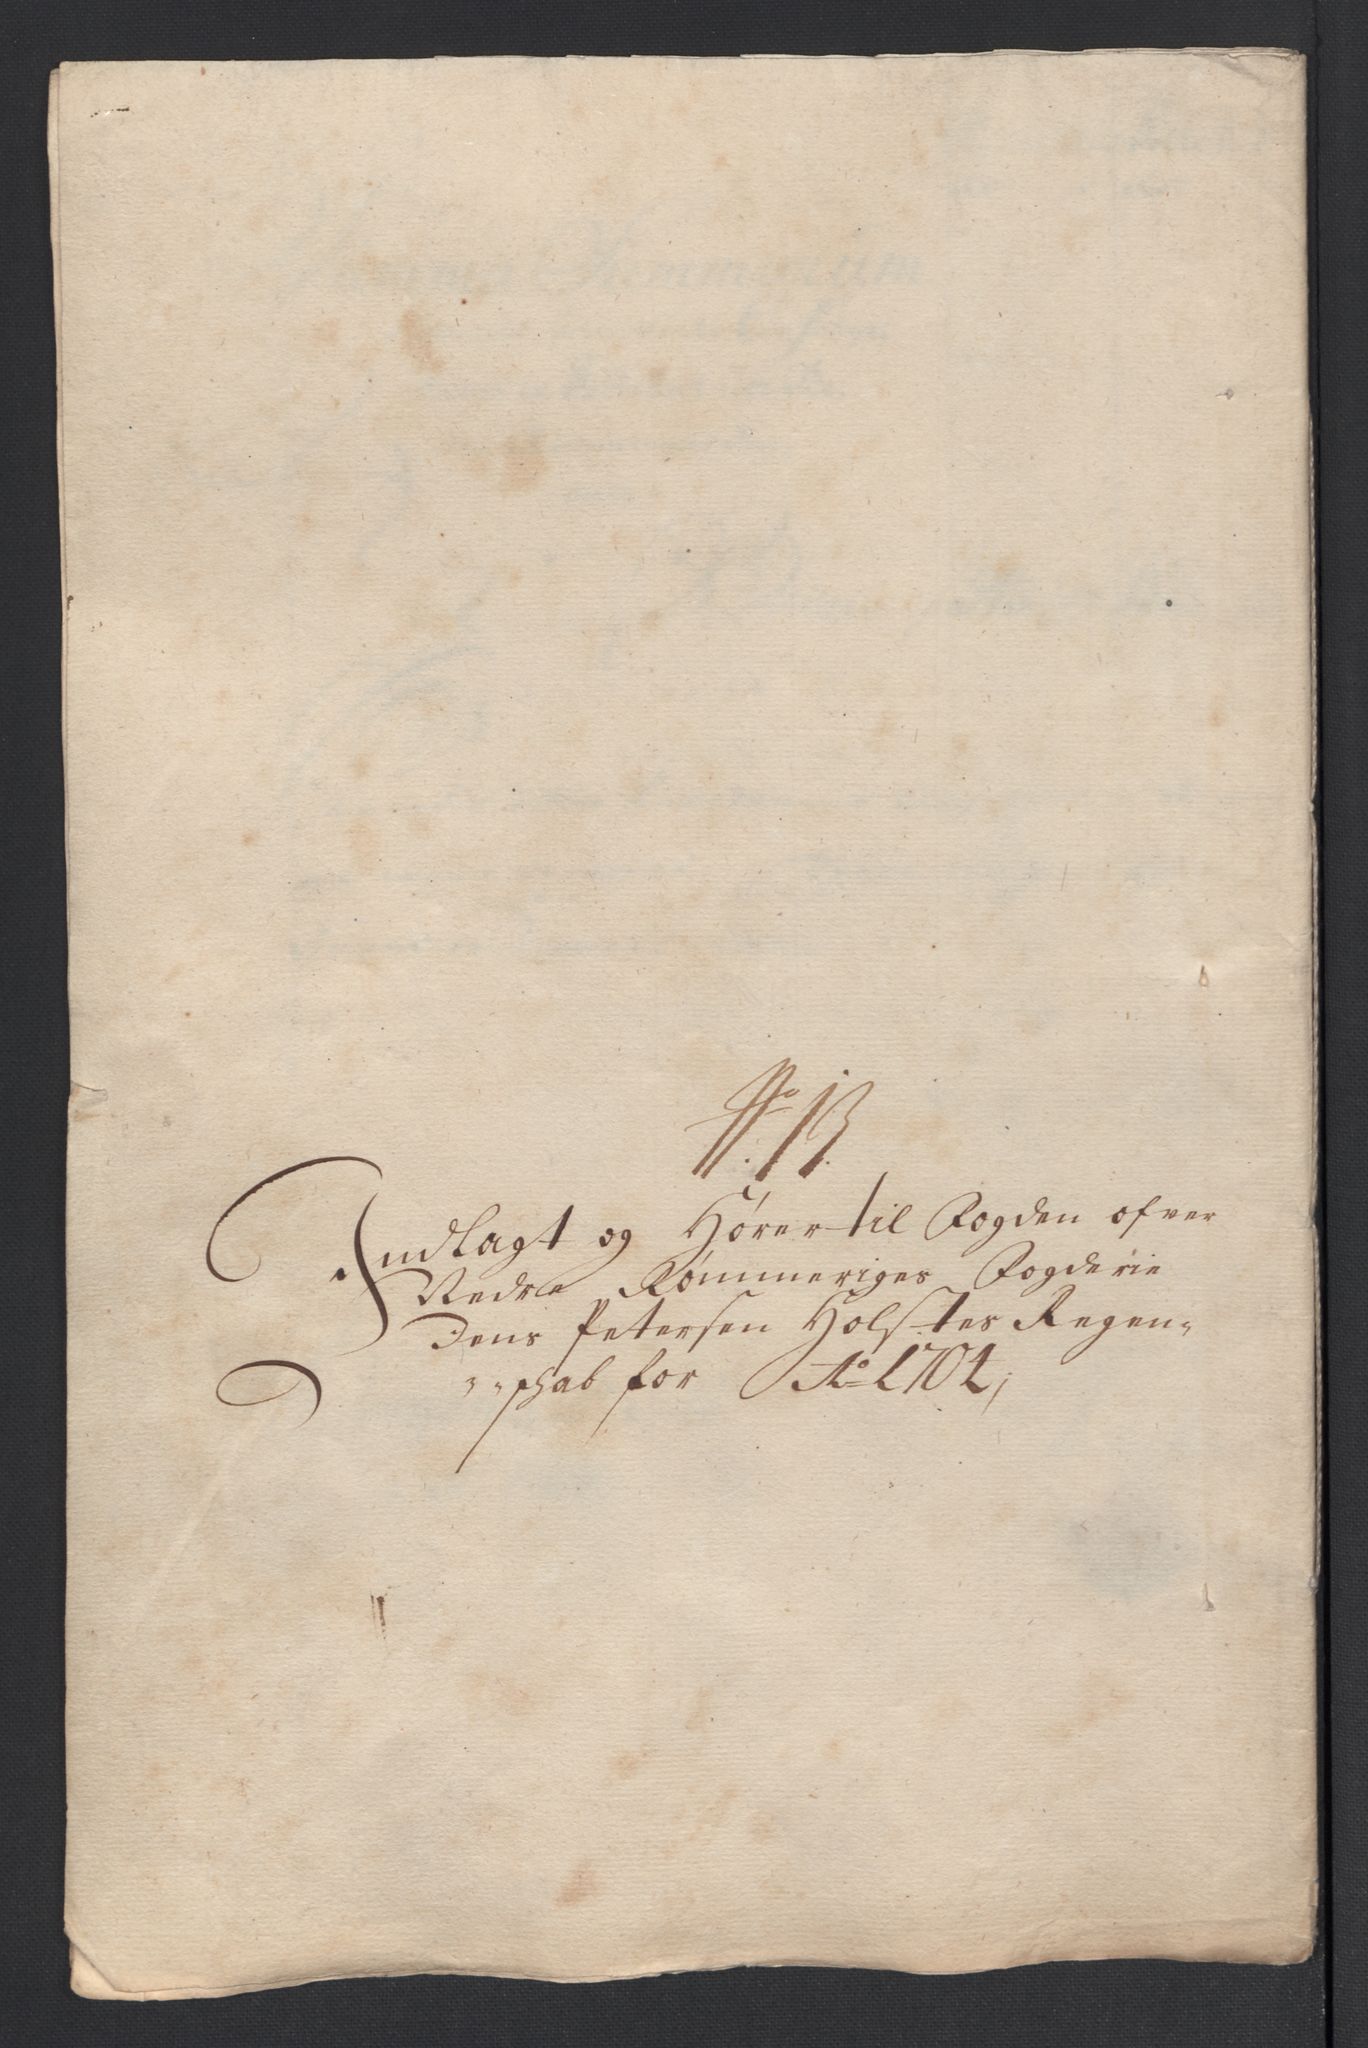 No 13.
Indlagt og Hører til Fogden ofver
Nedre Rømmeriges Fogderie
Jens Petersen Holstes Regen-
schab for Ao 1704,